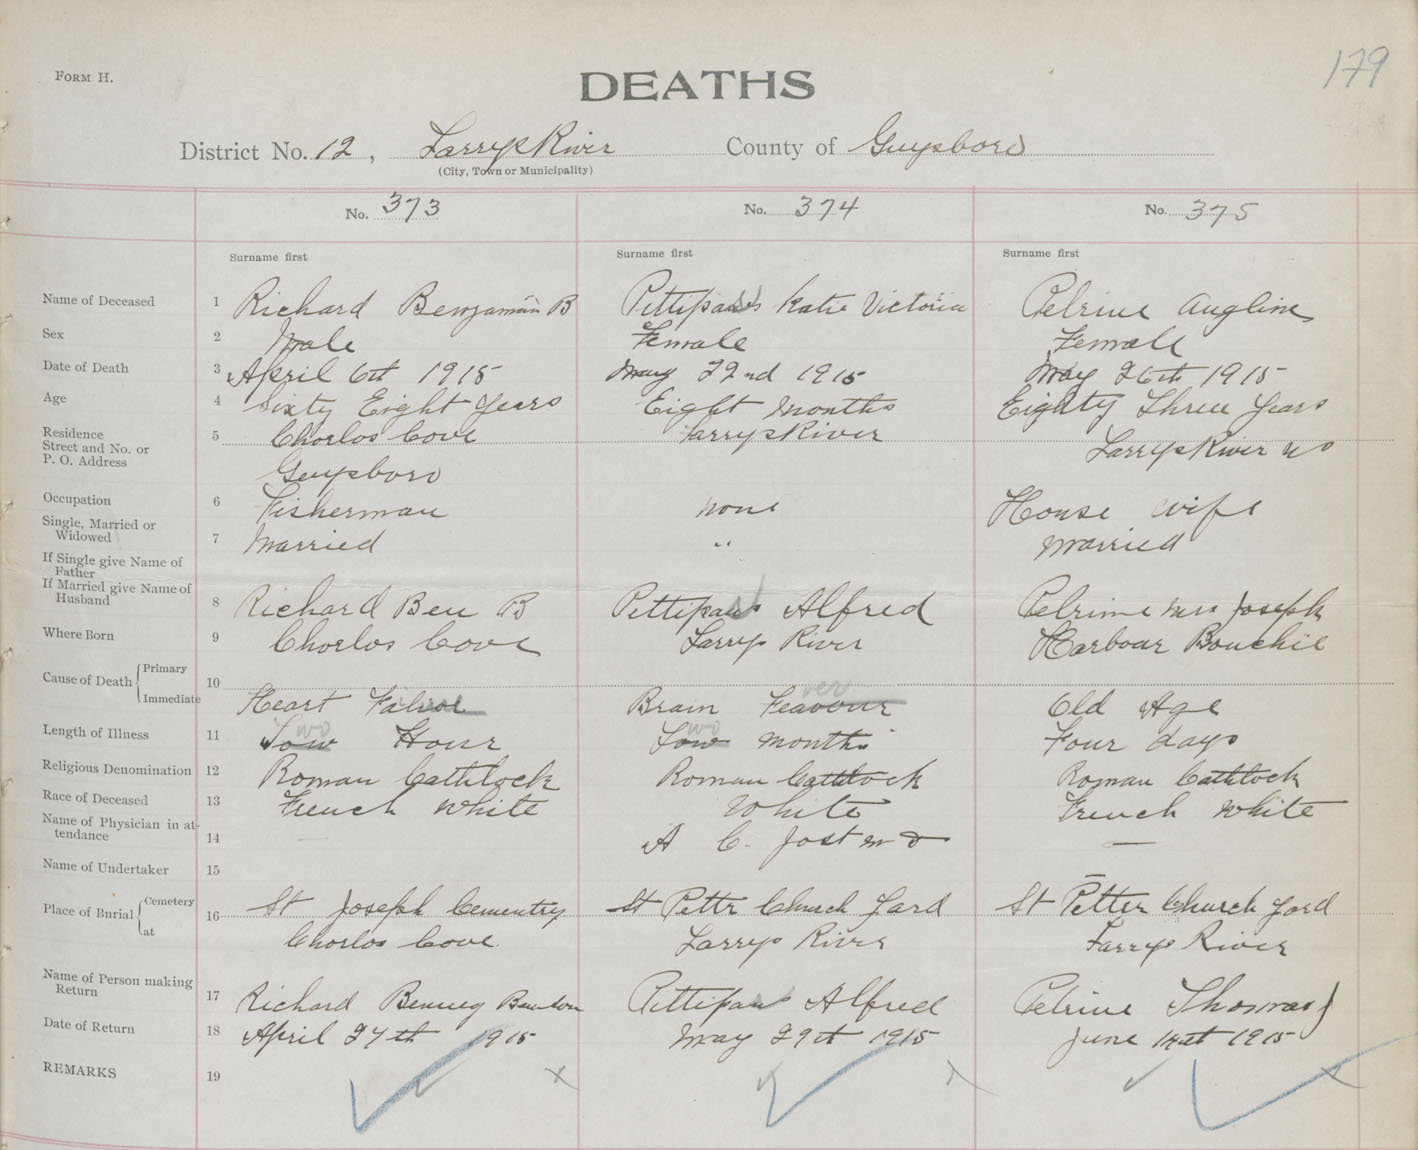 179
FORM H.
DEATHS
District No. 12, Larrys River County of Guysboro
(City, Town or Municipality)
No. 373 No. 374 No. 375
Surname first Surname first Surname first
Name of Deceased 1 Richard Benjamin B Pettipaus Katie Victoria Pelrine Augline
Sex 2 Male Female Female
Date of Death 3 April 6th 1915 May 22nd 1915 May 26th 1915
Age 4 Sixty Eight Years Eight Months Eighty Three Years
Residence
Street and No. or
P. O. Address
5 Chorlos Cove Larrys River Larrys River
Guysboro
Occupation 6 Fisherman none House wife
Single, Married or
Widowed
7 Married " Married
If Single give Name of
Father
If Married give Name of
Husband
8 Richard Ben B Pettipaus Alfred Pelrine Mrs Joseph
Where Born 9 Chorlos Cove Larrys River Harbour Bouchie
Cause of Death { Primary
Immediate
10
Heart Falure Brain Feavour ver Old Age
Length of Illness 11 Tow wo Hour Tow wo months Four days
Religious Denomination 12 Roman Cathlock Roman Cathlock Roman Cathlock
Race of Deceased 13 French White White French White
Name of Physician in at-
tendance
14 — A C. Jost M D —
Name of Undertaker 15
Place of Burial { Cemetery
at
16 St Joseph Cementry St Pettr Church Yard St Petter Church Yard
Chorlos Cove. Larrys River Larrys River
Name of Person making
Return
17 Richard Benney Pettipaus Alfred Pelrine Thomas J
Date of Return 18 April 27th 1915 May 29th 1915 June 1915
REMARKS 19